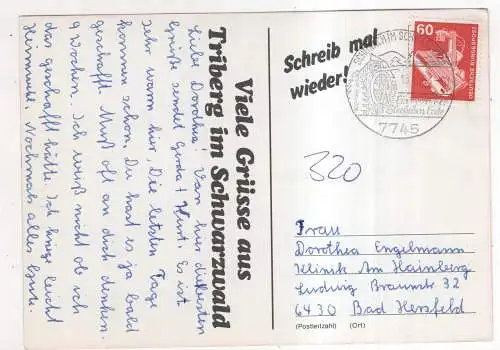 Viele Grüsse aus
Triberg im Schwarzwald
Liebe Dorothea! Von hier die besten
Grüße sendet Gerda + Kurt. Es ist
sehr warm hier. Die letzten Tage
kommen schon, Du hast es ja bald
geschafft. Muß oft an dich denken.
9 Wochen. Ich weiß nicht ob ich
das geschafft hätte. Ich kriege leicht
Heimweh. Nochmals alles Gute.
Schreib mal
wieder!
60
DEUTSCHE BUNDESPOST
7745
320
Frau
Dorothea Engelmann
Klinik Am Hainberg
Ludwig Braunstr 32
6430 Bad Hersfeld
(Postleitzahl) (Ort)